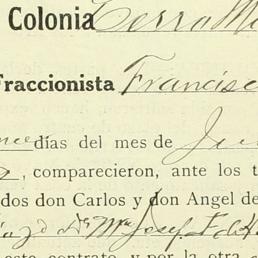 Colonia Cerro M
Fraccionista Francisc
días del mes de Ju
, comparecieron, ante los t
dos don Carlos y don Angel de
Josef
este contrato, y por la otra